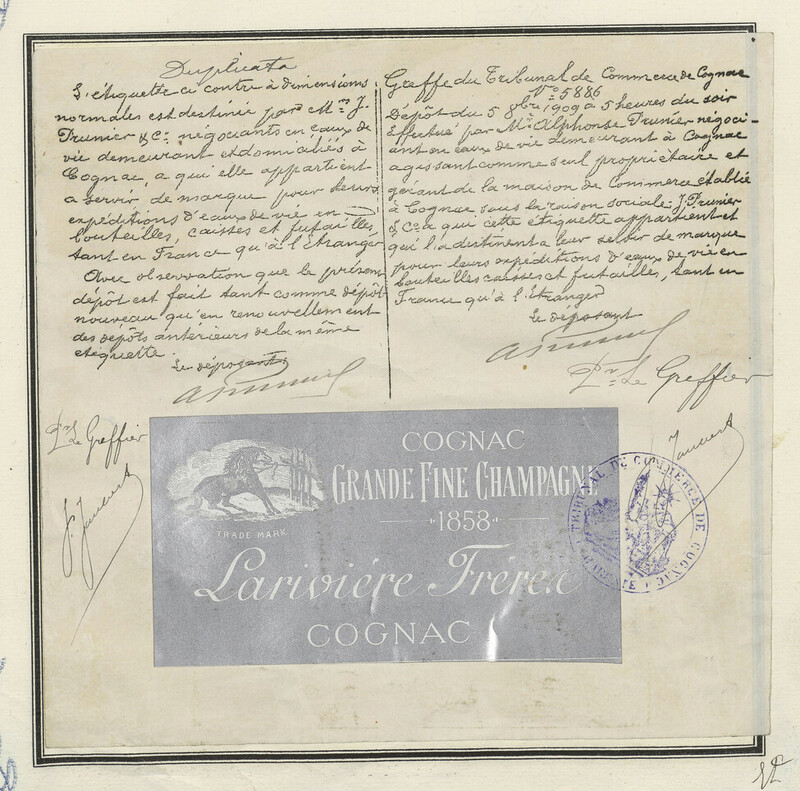 Duplicata
L'étiquette ci contre à dimensions
normales est destinée par Mrs J.
Prunier & Cie négociants en eaux de
vie demeurant et domiciliés à
Cognac, a qui elle appartient
a servir de marque pour leurs
expéditions d'eaux de vie en
bouteilles, caisses et futailles,
tant en France qu'à l'étranger
Avec observation que le présent
dépôt est fait tant comme dépôt
nouveau qu'en renouvellement
des dépôts antérieurs de la même
etiquette.
Le déposant
Pr Le Greffier
Greffe du Tribunal de Commerce de Cognac
No 5886
Dépôt du 5 9bre 1909 à 5 heures du soir
Effectué par Mr Alphonse Prunier négoci-
ant en eaux de vie demeurant à Cognac
agissant comme seul propriétaire et
gérant de la maison de Commerce établie
à Cognac sous la raison sociale J. Prunier
& Cie a qui cette étiquette appartient et
qui l'a destinent a leur servir de marque
pour leurs expéditions d'eaux de vie en
bouteilles caisses et futailles, tant en
France qu'à l'étranger
Le déposant
Pr Le Greffier
COGNAC
GRANDE FINE CHAMPAGNE
1858
TRADE MARK
Larivière Frères
COGNAC
TRIBUNAL DE COMMERCE DE COGNAC